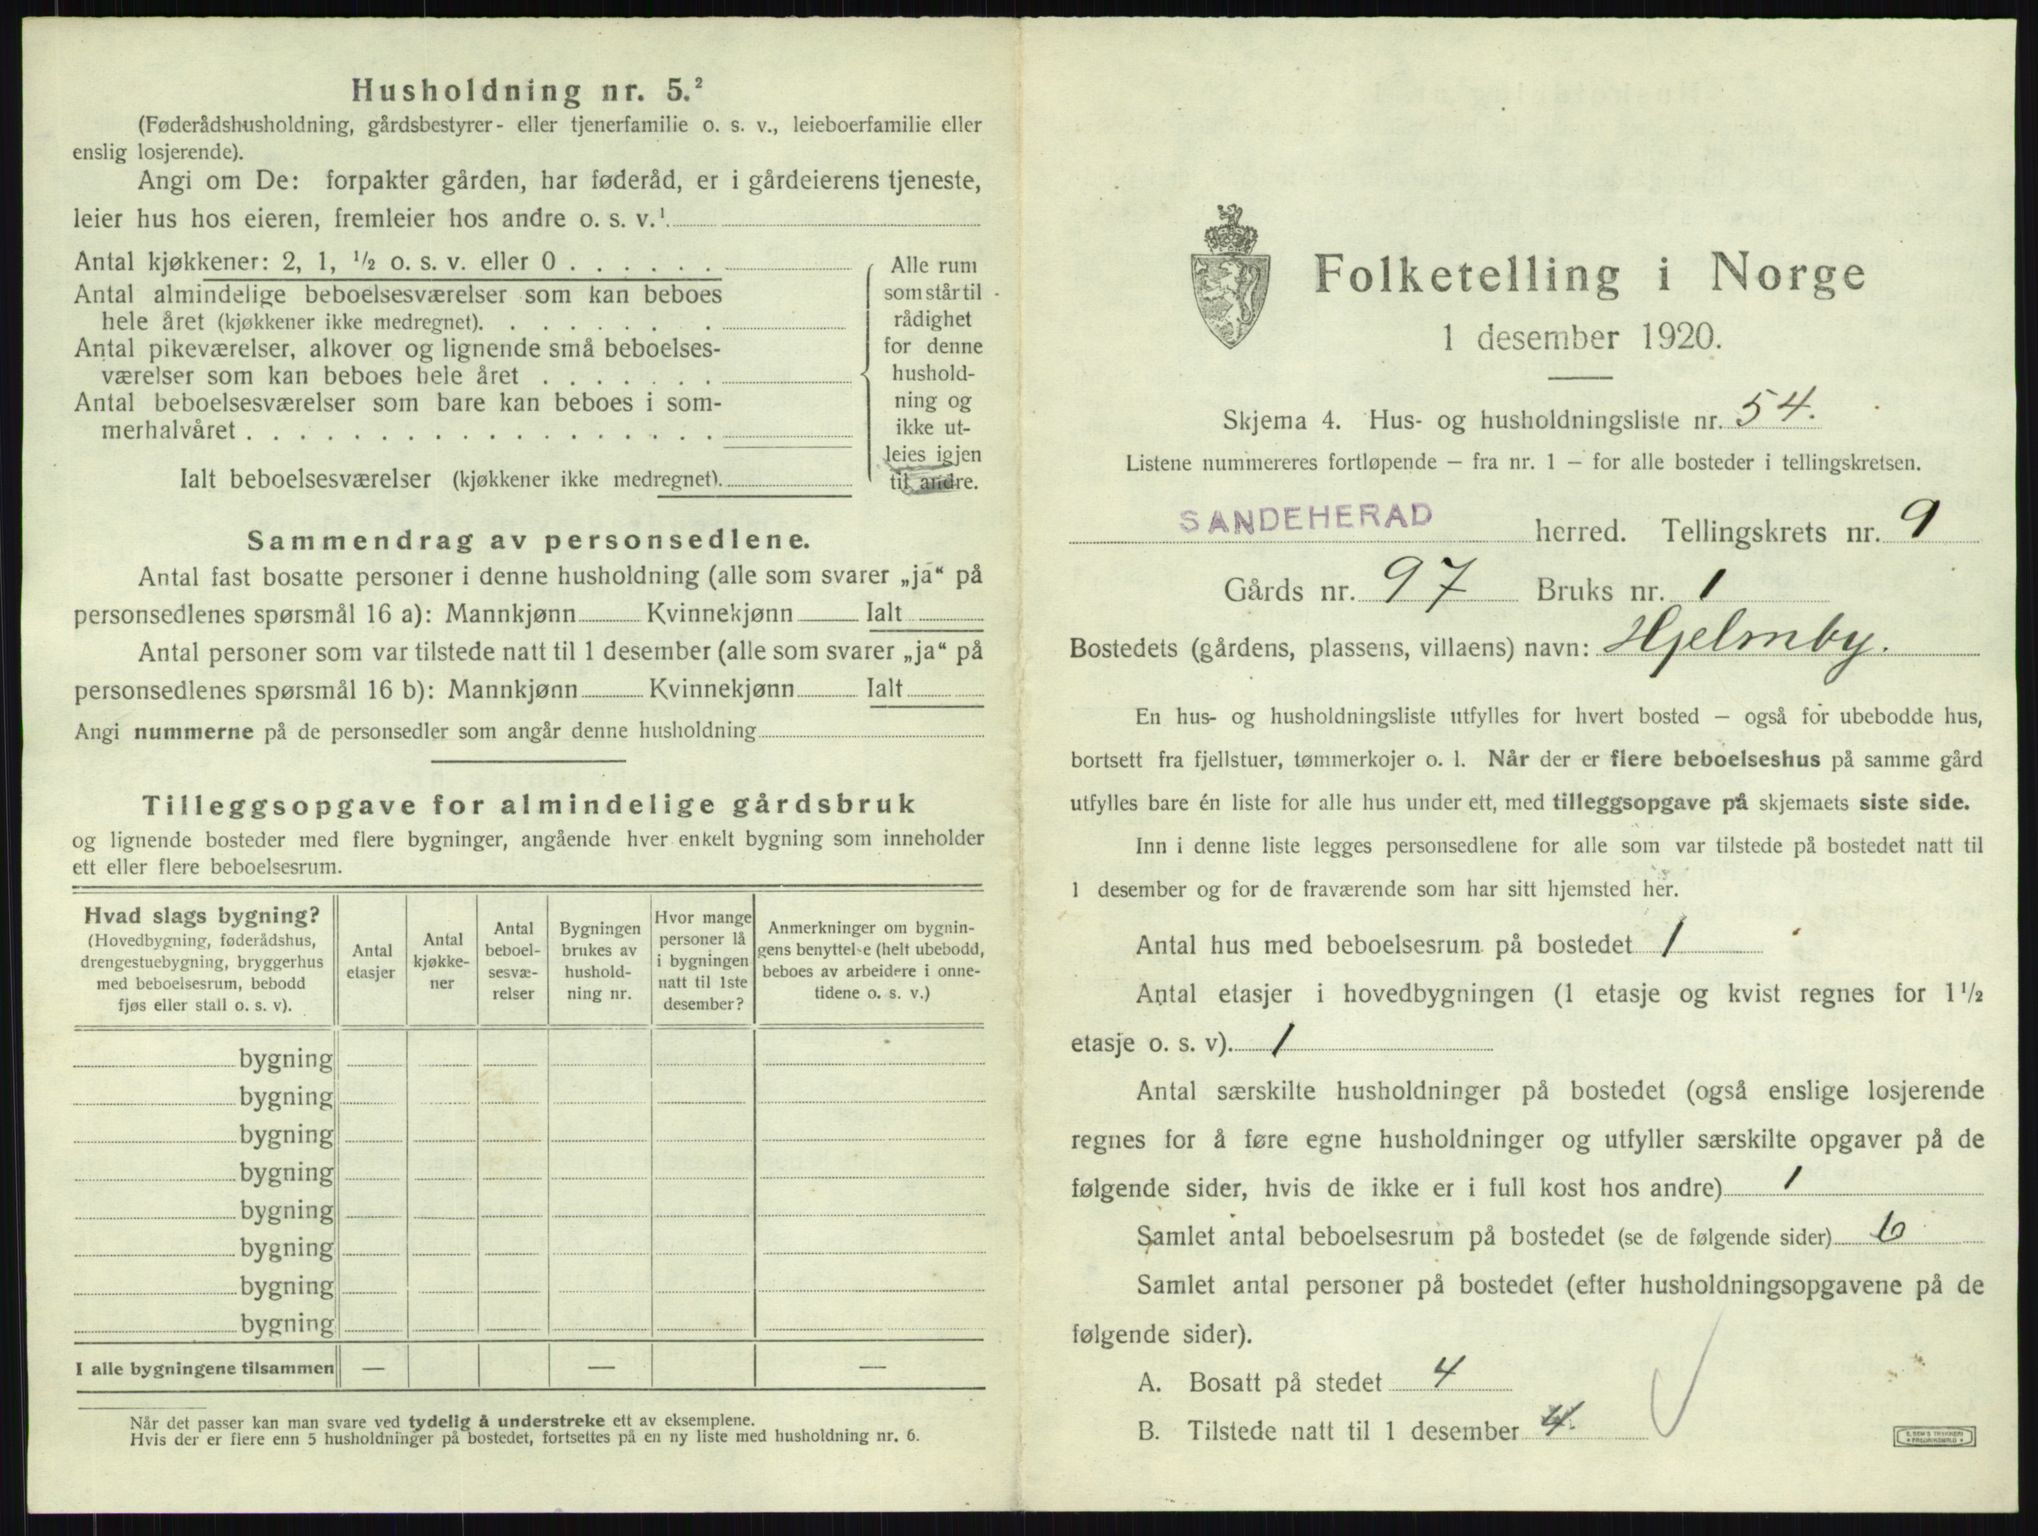 Husholdning nr. 5.²
(Føderådshusholdning, gårdsbestyrer- eller tjenerfamilie o. s. v., leieboerfamilie eller
enslig losjerende).
Angi om De: forpakter gården, har føderåd, er i gårdeierens tjeneste,
leier hus hos eieren, fremleier hos andre o. s. v.¹
Antal kjøkkener: 2, 1, ½ o. s. v. eller 0 . . . . . .
Antal almindelige beboelsesværelser som kan beboes
hele året (kjøkkener ikke medregnet). . . . . . . .
Antal pikeværelser, alkover og lignende små beboelses-
værelser som kan beboes hele året . . . . . . .
Antal beboelsesværelser som bare kan beboes i som-
merhalvåret . . . . . . . . . . . . . . . . . .
Alle rum
som står til
rådighet
for denne
hushold-
ning og
ikke ut-
leies igjen
til andre.
Ialt beboelsesværelser (kjøkkener ikke medregnet).
Sammendrag av personsedlene.
Antal fast bosatte personer i denne husholdning (alle som svarer „ja“ på
personsedlenes spørsmål 16 a): Mannkjønn Kvinnekjønn Ialt
Antal personer som var tilstede natt til 1 desember (alle som svarer „ja“ på
personsedlenes spørsmål 16 b): Mannkjønn Kvinnekjønn Ialt
Angi nummerne på de personsedler som angår denne husholdning
Tilleggsopgave for almindelige gårdsbruk
og lignende bosteder med flere bygninger, angående hver enkelt bygning som inneholder
ett eller flere beboelsesrum.
Hvad slags bygning?
(Hovedbygning, føderådshus,
drengestuebygning, bryggerhus
med beboelsesrum, bebodd
fjøs eller stall o. s. v).
Antal
etasjer
Antal
kjøkke-
ner
Antal
beboel-
sesvæ-
relser
Bygningen
brukes av
hushold-
ning nr.
Hvor mange
personer lå
i bygningen
natt til 1ste
desember?
Anmerkninger om bygnin-
gens benyttelse (helt ubebodd,
beboes av arbeidere i onne-
tidene o. s. v.)
bygning
bygning
bygning
bygning
bygning
bygning
bygning
bygning
I alle bygningene tilsammen — — —
Når det passer kan man svare ved tydelig å understreke ett av eksemplene.
Hvis der er flere enn 5 husholdninger på bostedet, fortsettes på en ny liste med husholdning nr. 6.
Folketelling i Norge
1 desember 1920.
Skjema 4. Hus- og husholdningsliste nr. 54.
Listene nummereres fortløpende — fra nr. 1 — for alle bosteder i tellingskretsen.
SANDEHERAD herred. Tellingskrets nr. 9
Gårds nr. 97 Bruks nr. 1
Bostedets (gårdens, plassens, villaens) navn: Hjelmby.
En hus- og husholdningsliste utfylles for hvert bosted — også for ubebodde hus,
bortsett fra fjellstuer, tømmerkojer o. l. Når der er flere beboelseshus på samme gård
utfylles bare én liste for alle hus under ett, med tilleggsopgave på skjemaets siste side.
Inn i denne liste legges personsedlene for alle som var tilstede på bostedet natt til
1 desember og for de fraværende som har sitt hjemsted her.
Antal hus med beboelsesrum på bostedet 1
Antal etasjer i hovedbygningen (1 etasje og kvist regnes for 1½
etasje o. s. v). 1
Antal særskilte husholdninger på bostedet (også enslige losjerende
regnes for å føre egne husholdninger og utfyller særskilte opgaver på de
følgende sider, hvis de ikke er i full kost hos andre) 1
Samlet antal beboelsesrum på bostedet (se de følgende sider) 6
Samlet antal personer på bostedet (efter husholdningsopgavene på de
følgende sider).
A. Bosatt på stedet 4
B. Tilstede natt til 1 desember 4.
E. SEM'S TRYKKERI
• FREDRIKSHALD •